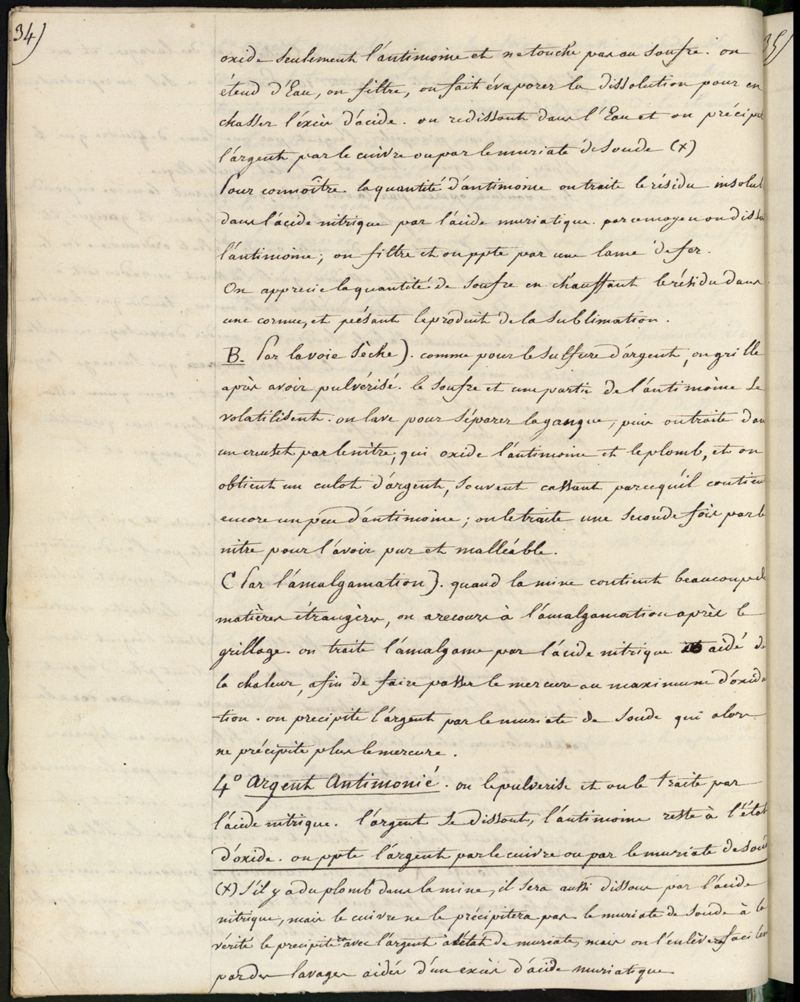 34)
oxide seulement l'antimoine et ne touche pas au soufre. on
étend d'Eau, on filtre, on fait évaporer la dissolution pour en
chasser l'excès d'acide. on redissout dans l'Eau et on précipi
l'argent par le cuivre ou par le muriate de Soude (x)
Pour connoître la quantité d'antimoine on traite le résidu insolub
dans l'acide nitrique par l'acide muriatique. par ce moyen on disso
l'antimoine; on filtre et on ppte par une lame de fer.
On apprecie la quantité de Soufre en chauffant le résidu dans
une cornue, et pésant le produit de la sublimation.
B. Par la voie Sèche). comme pour le Sulfure d'argent, on grille
après avoir pulvérisé. le soufre et une partie de l'antimoine se
volatilisent. on lave pour séparer la gangue, puis on traite dan
un creuset par le nitre, qui oxide l'antimoine et le plomb, et on
obtient un culot d'argent, souvent cassant parcequ'il contien
encore un peu d'antimoine; on le traite une seconde fois par le
nitre pour l'avoir pur et malléable.
C Par l'amalgamation). quand la mine contient beaucoup de
matières étrangères, on a recours à l'amalgamation après le
grillage. on traite l'amalgame par l'acide nitrique aidé de
la chaleur, afin de faire passer le mercure au maximum d'oxida
-tion. on precipite l'argent par le muriate de Soude qui alors
ne précipite plus le mercure.
4° Argent Antimonié. on le pulverise et on le traite par
l'acide nitrique. l'argent se dissout, l'antimoine reste à l'état
d'oxide. on ppte l'argent par le cuivre ou par le muriate de Soud
(x) S'il y a du plomb dans la mine, il sera aussi dissous par l'acide
nitrique, mais le cuivre ne le précipitera pas. le muriate de Soude à la
vérité le precipite avec l'argent à l'état de muriate, mais on l'enlèvera facilem
par des lavages aidés d'un excès d'acide muriatique
35)